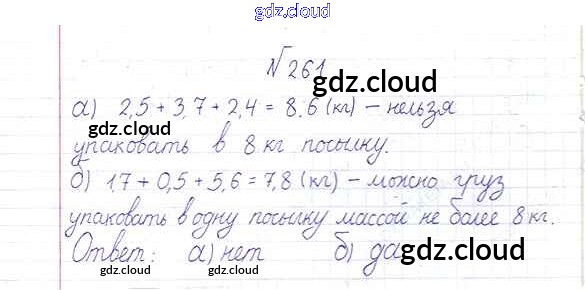 gdz.cloud
№ 261
gdz.cloud
а) 2,5 + 3,7 + 2,4 = 8,6 (кг) – нельзя
gdz.cloud
упаковать в 8 кг посылку.
б) 17 + 0,5 + 5,6 = 7,8 (кг) – можно груз
gdz.cloud
упаковать в одну посылку массой не более 8 кг.
Ответ: а) нет б) да
gdz.cloud
gdz.cloud gdz.cloud